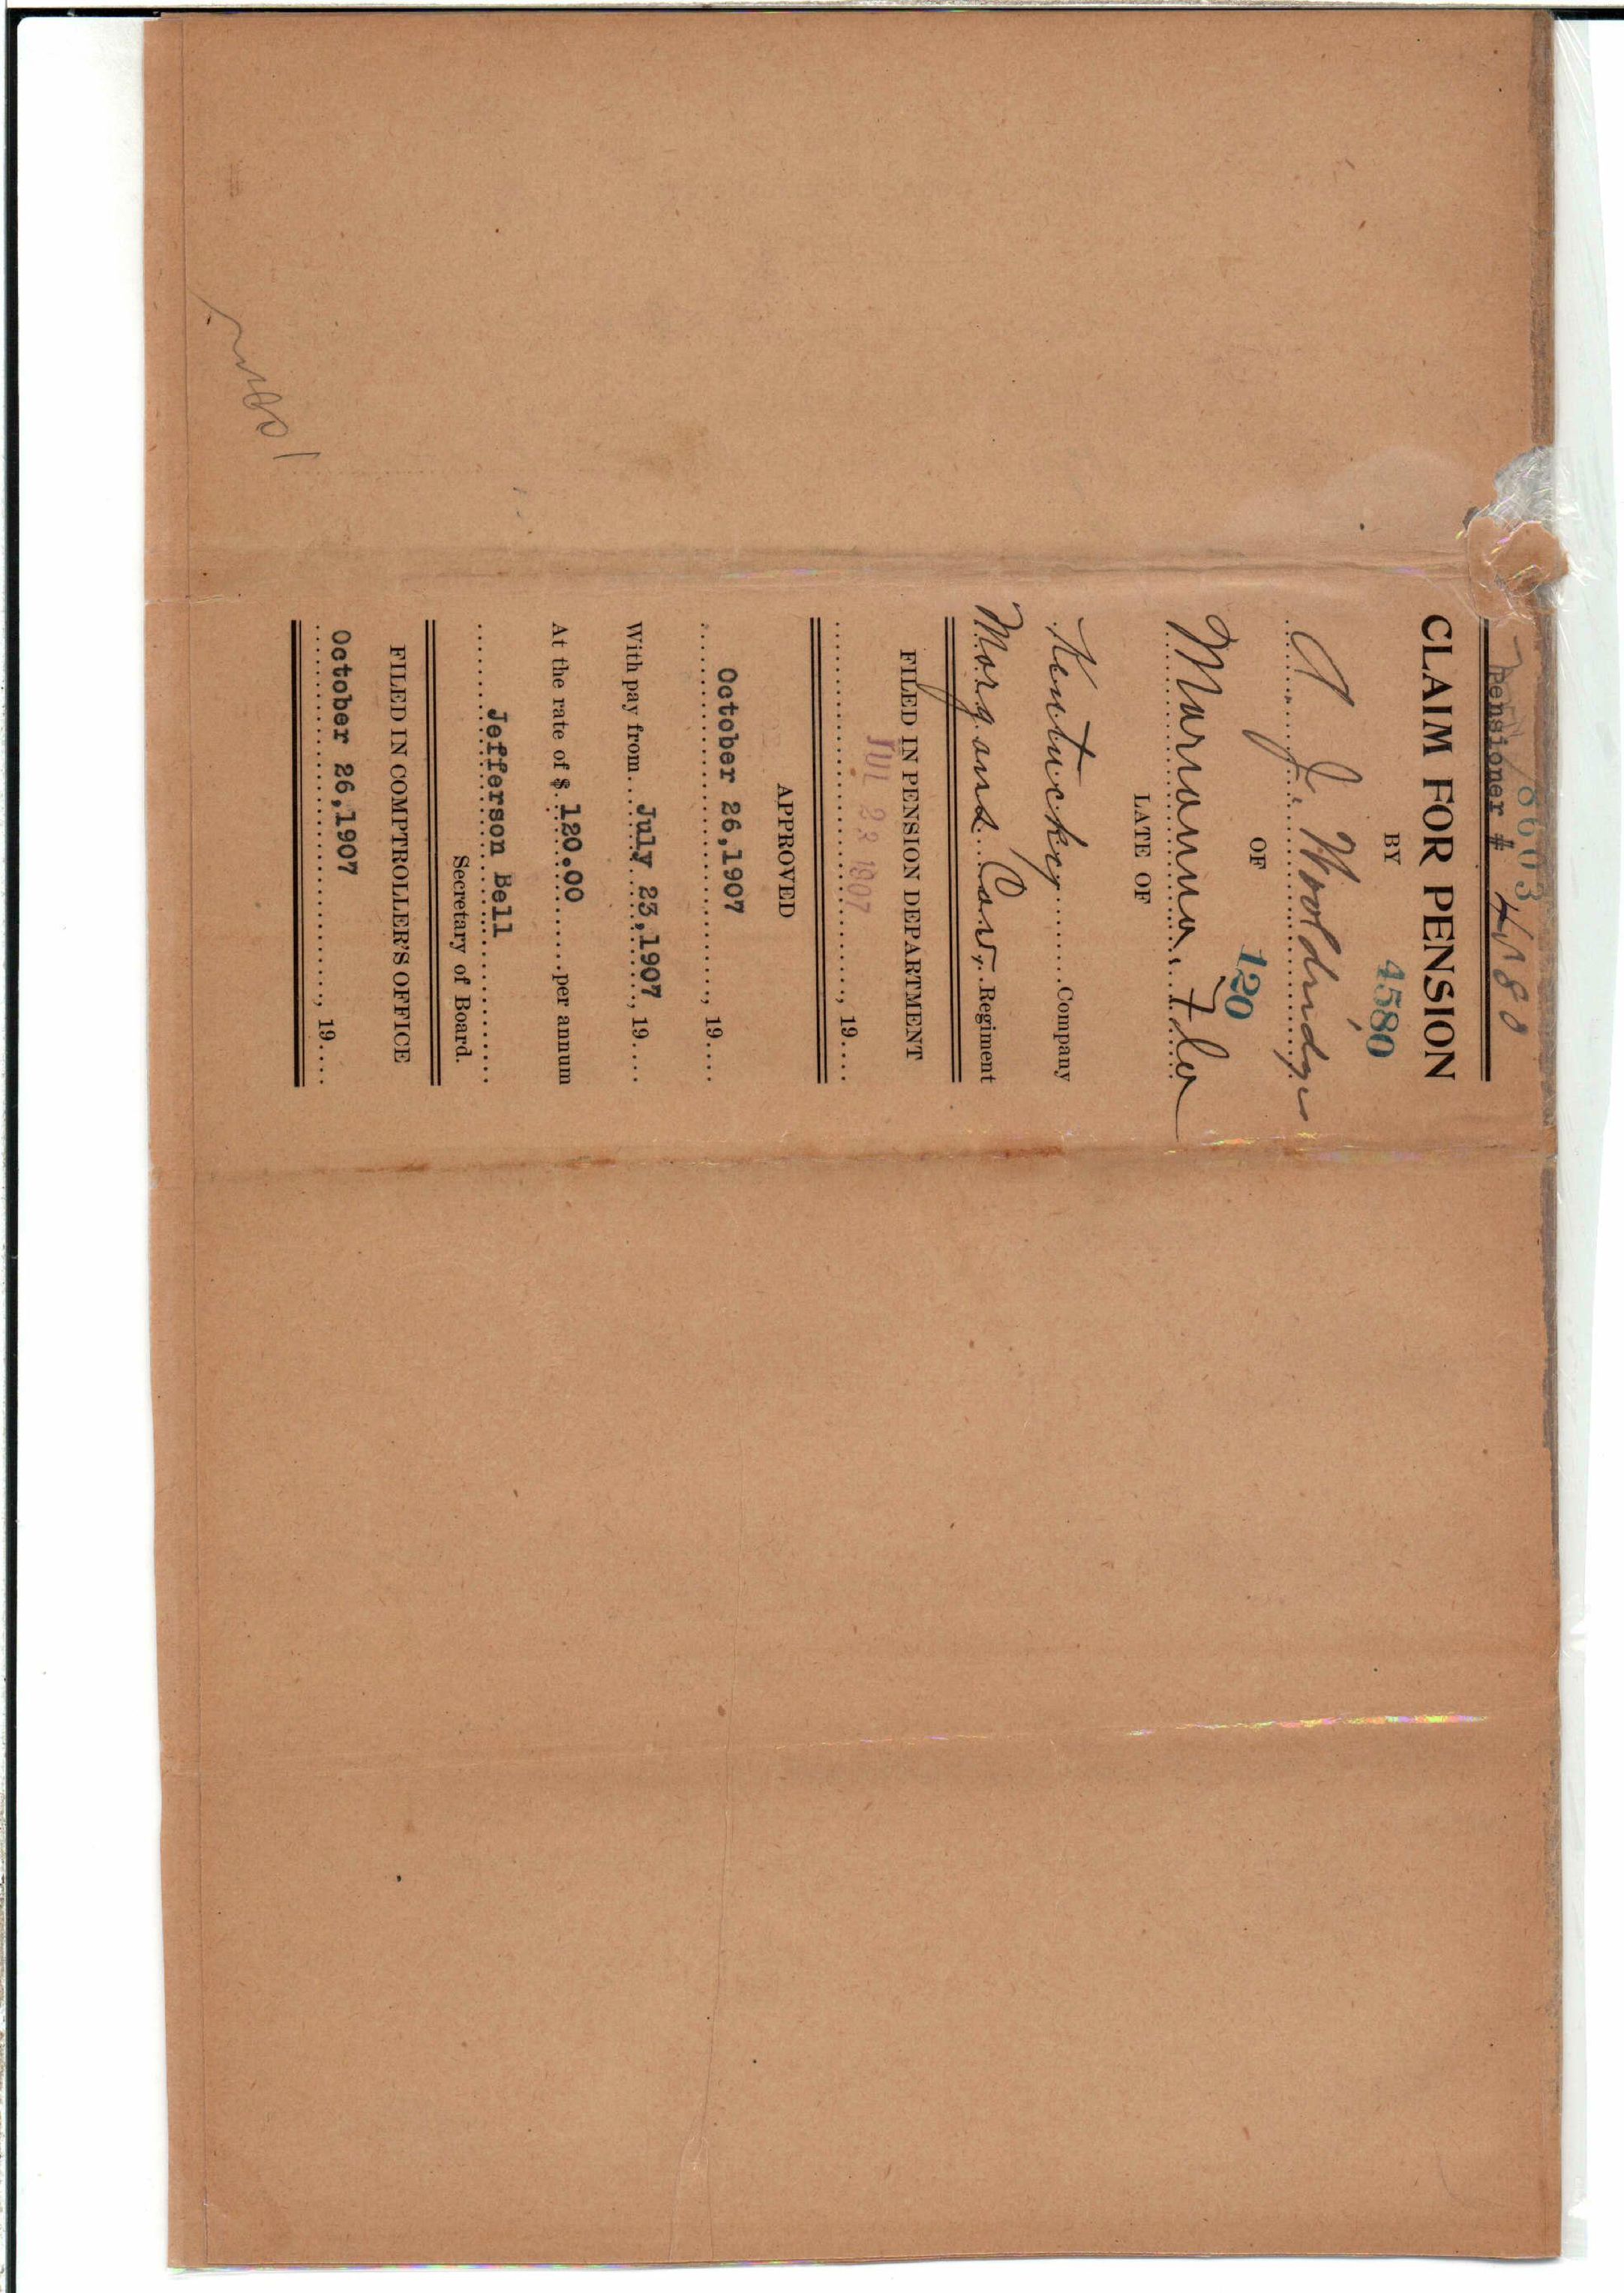 18603
Pensioner # 4580
CLAIM FOR PENSION
BY
4580
A. J. Wooldridge
OF
120
Marianna, Fla
LATE OF
Kentucky Company
Morgans Cav. Regiment
FILED IN PENSION DEPARTMENT
JUL 23 1907
, 19
APPROVED
October 26,1907
, 19
With pay from July 23,1907, 19
At the rate of $ 120.00 per annum
Jefferson Bell
Secretary of Board.
FILED IN COMPTROLLER'S OFFICE
October 26,1907
, 19